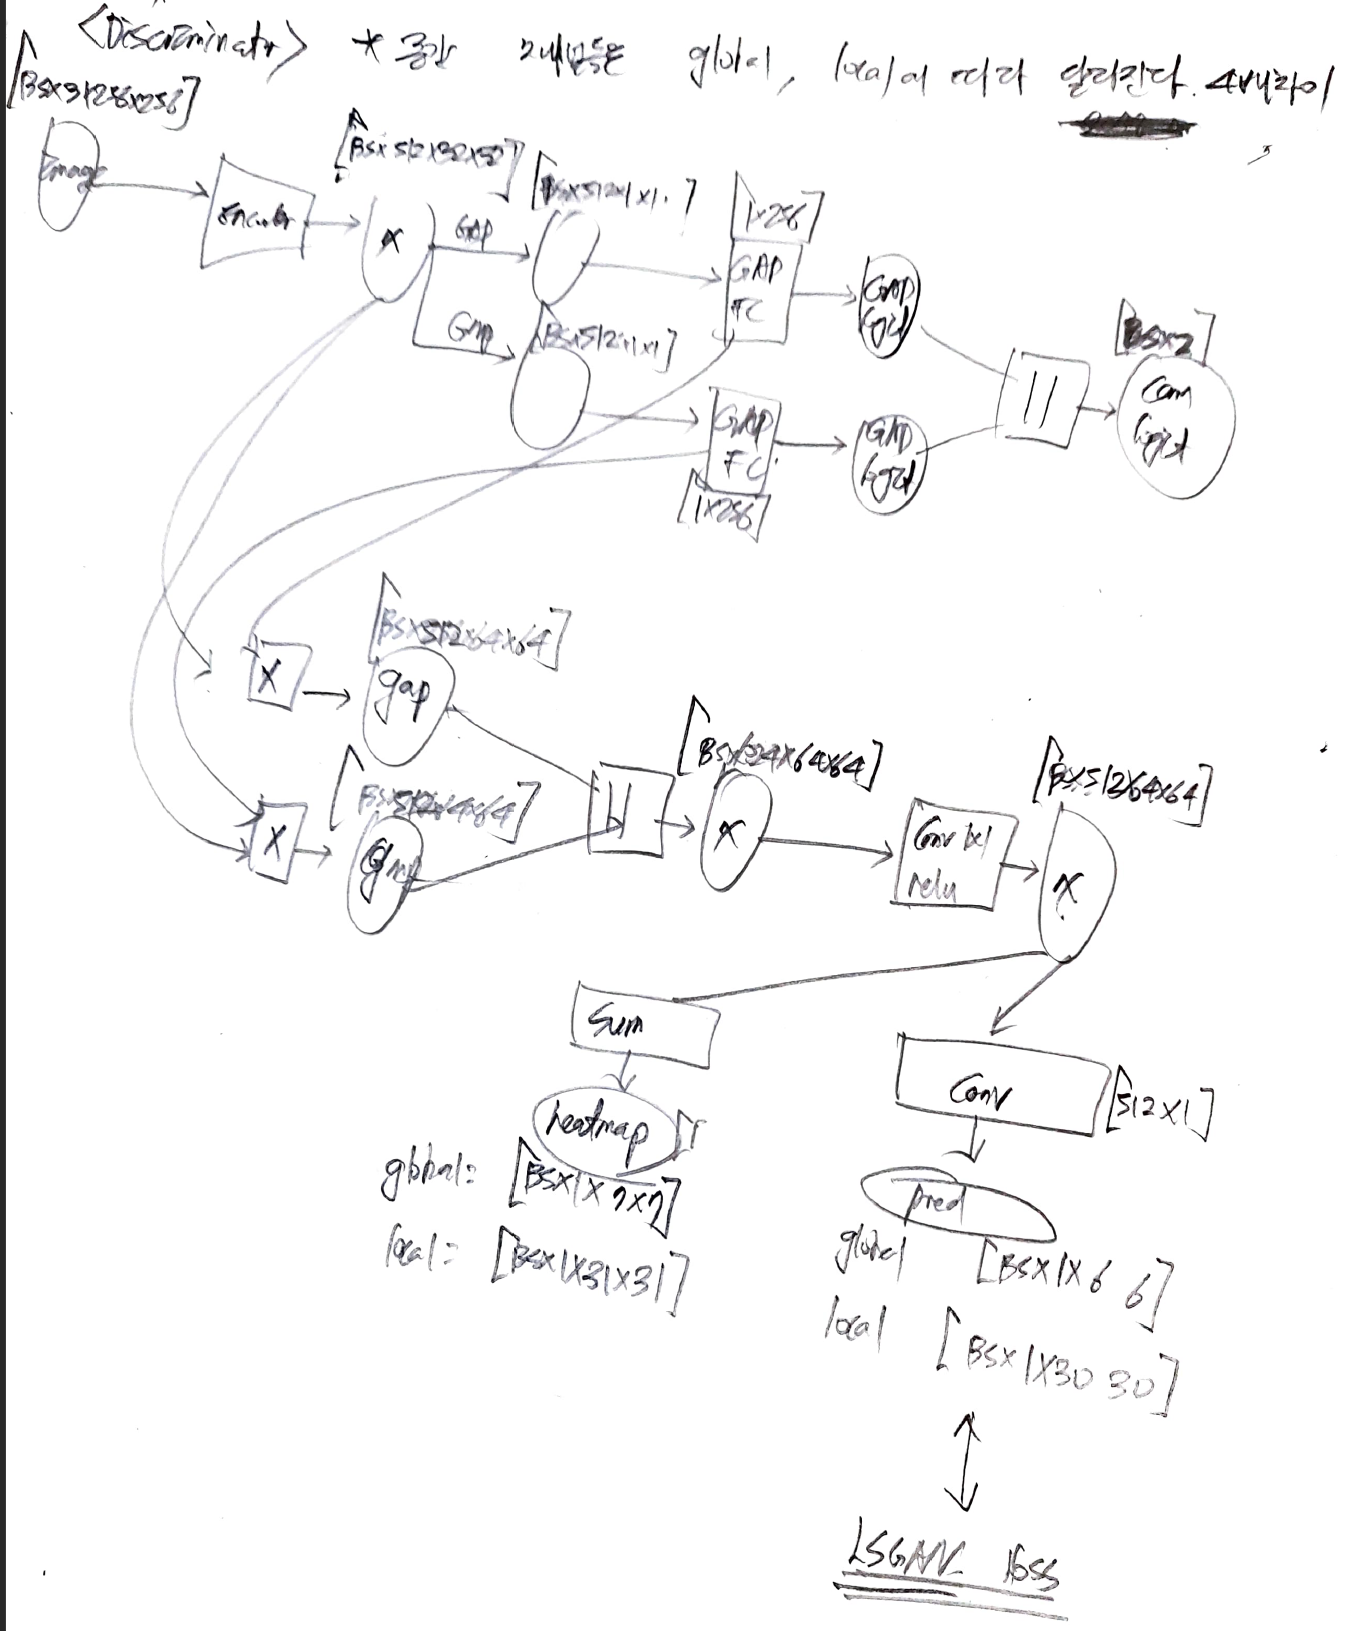 <Discriminator> * 중간 global, local에 따라 달라진다. 4배차이
[BSx3x256x256]
Image
Encoder
[BSx512x32x32]
x
GAP
[BSx512x1x1]
[1x256]
GAP FC
GAP logit
Gmp
[BSx512x1x1]
GAP FC
[1x256]
GAP logit
||
[BSx2]
Cam logit
X
[BSx512x64x64]
gap
X
[BSx512x64x64]
Gmp
||
[BSx1024x64x64]
x
Conv 1x1 relu
[BSx512x64x64]
x
Sum
heatmap
global = [BSx1x7x7]
local = [BSx1x31x31]
Conv [512x1]
pred
global [BSx1x6 6]
local [BSx1x30 30]
LSGAN loss